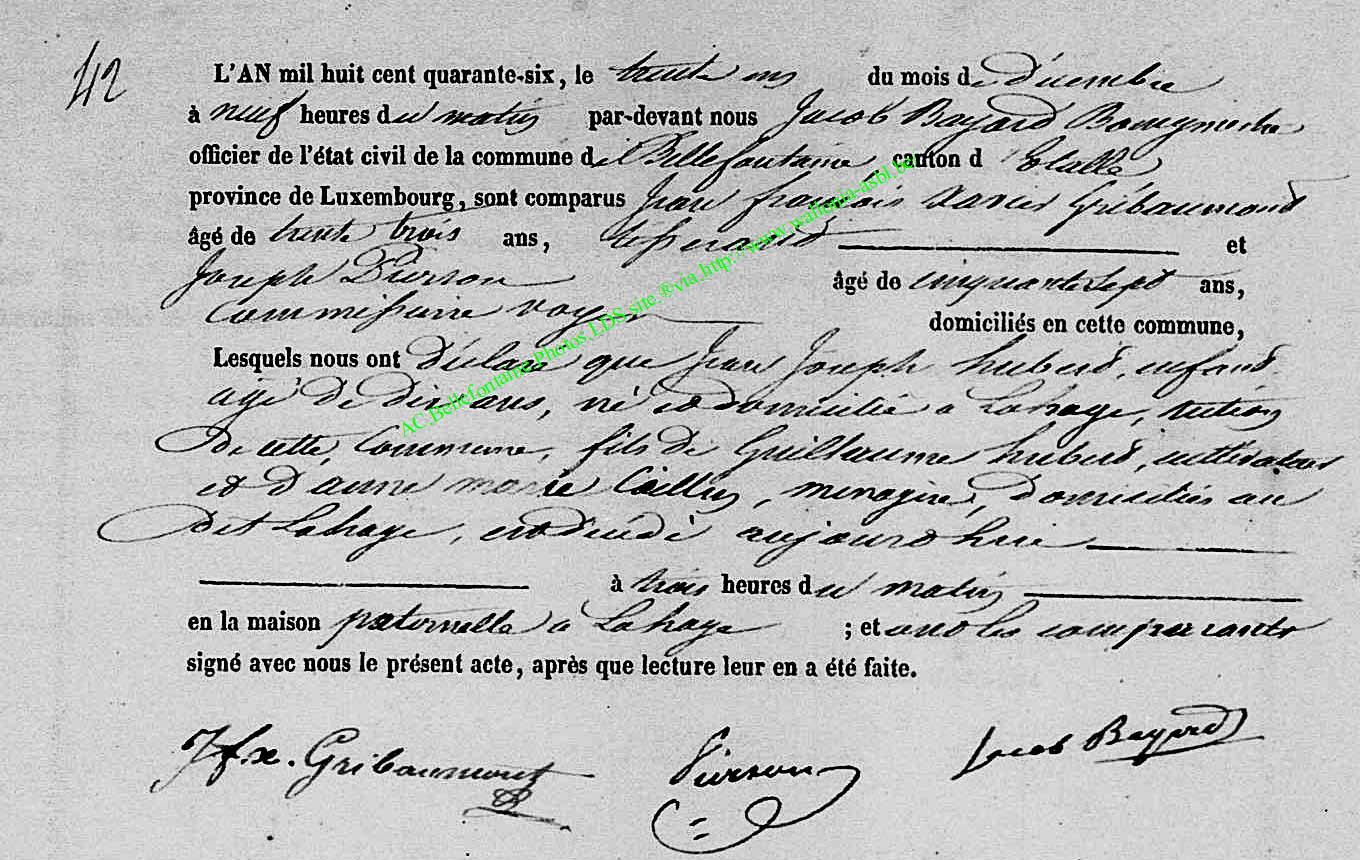 42
L'AN mil huit cent quarante-six, le trente un du mois de décembre
à neuf heures du matin par-devant nous Jacob Bayard Bourgmestre
officier de l'état civil de la commune de Bellefontaine canton d'Etalle
province de Luxembourg, sont comparus Jean françois xavier Gribaumont
âgé de trente trois ans, et
Joseph Pierson âgé de cinquante sept ans,
Commissaire voyer domiciliés en cette commune,
Lesquels nous ont déclaré que Jean Joseph hubert, enfant
agé de dix ans, né et domicilié à Lahage, section
de cette Commune, fils de Guillaume hubert, cultivateur
et d'anne marie Caillin, menagère, domiciliés au
dit Lahage, est décédé aujourd'hui
à trois heures du matin
en la maison paternelle à Lahage ; et ont les comparants
signé avec nous le présent acte, après que lecture leur en a été faite.
Jfx. Gribaumont Pierson Jacob Bayard
AC.Bellefontaine.Photos.LDS site.®via.http://www.wallonia-asbl.be/